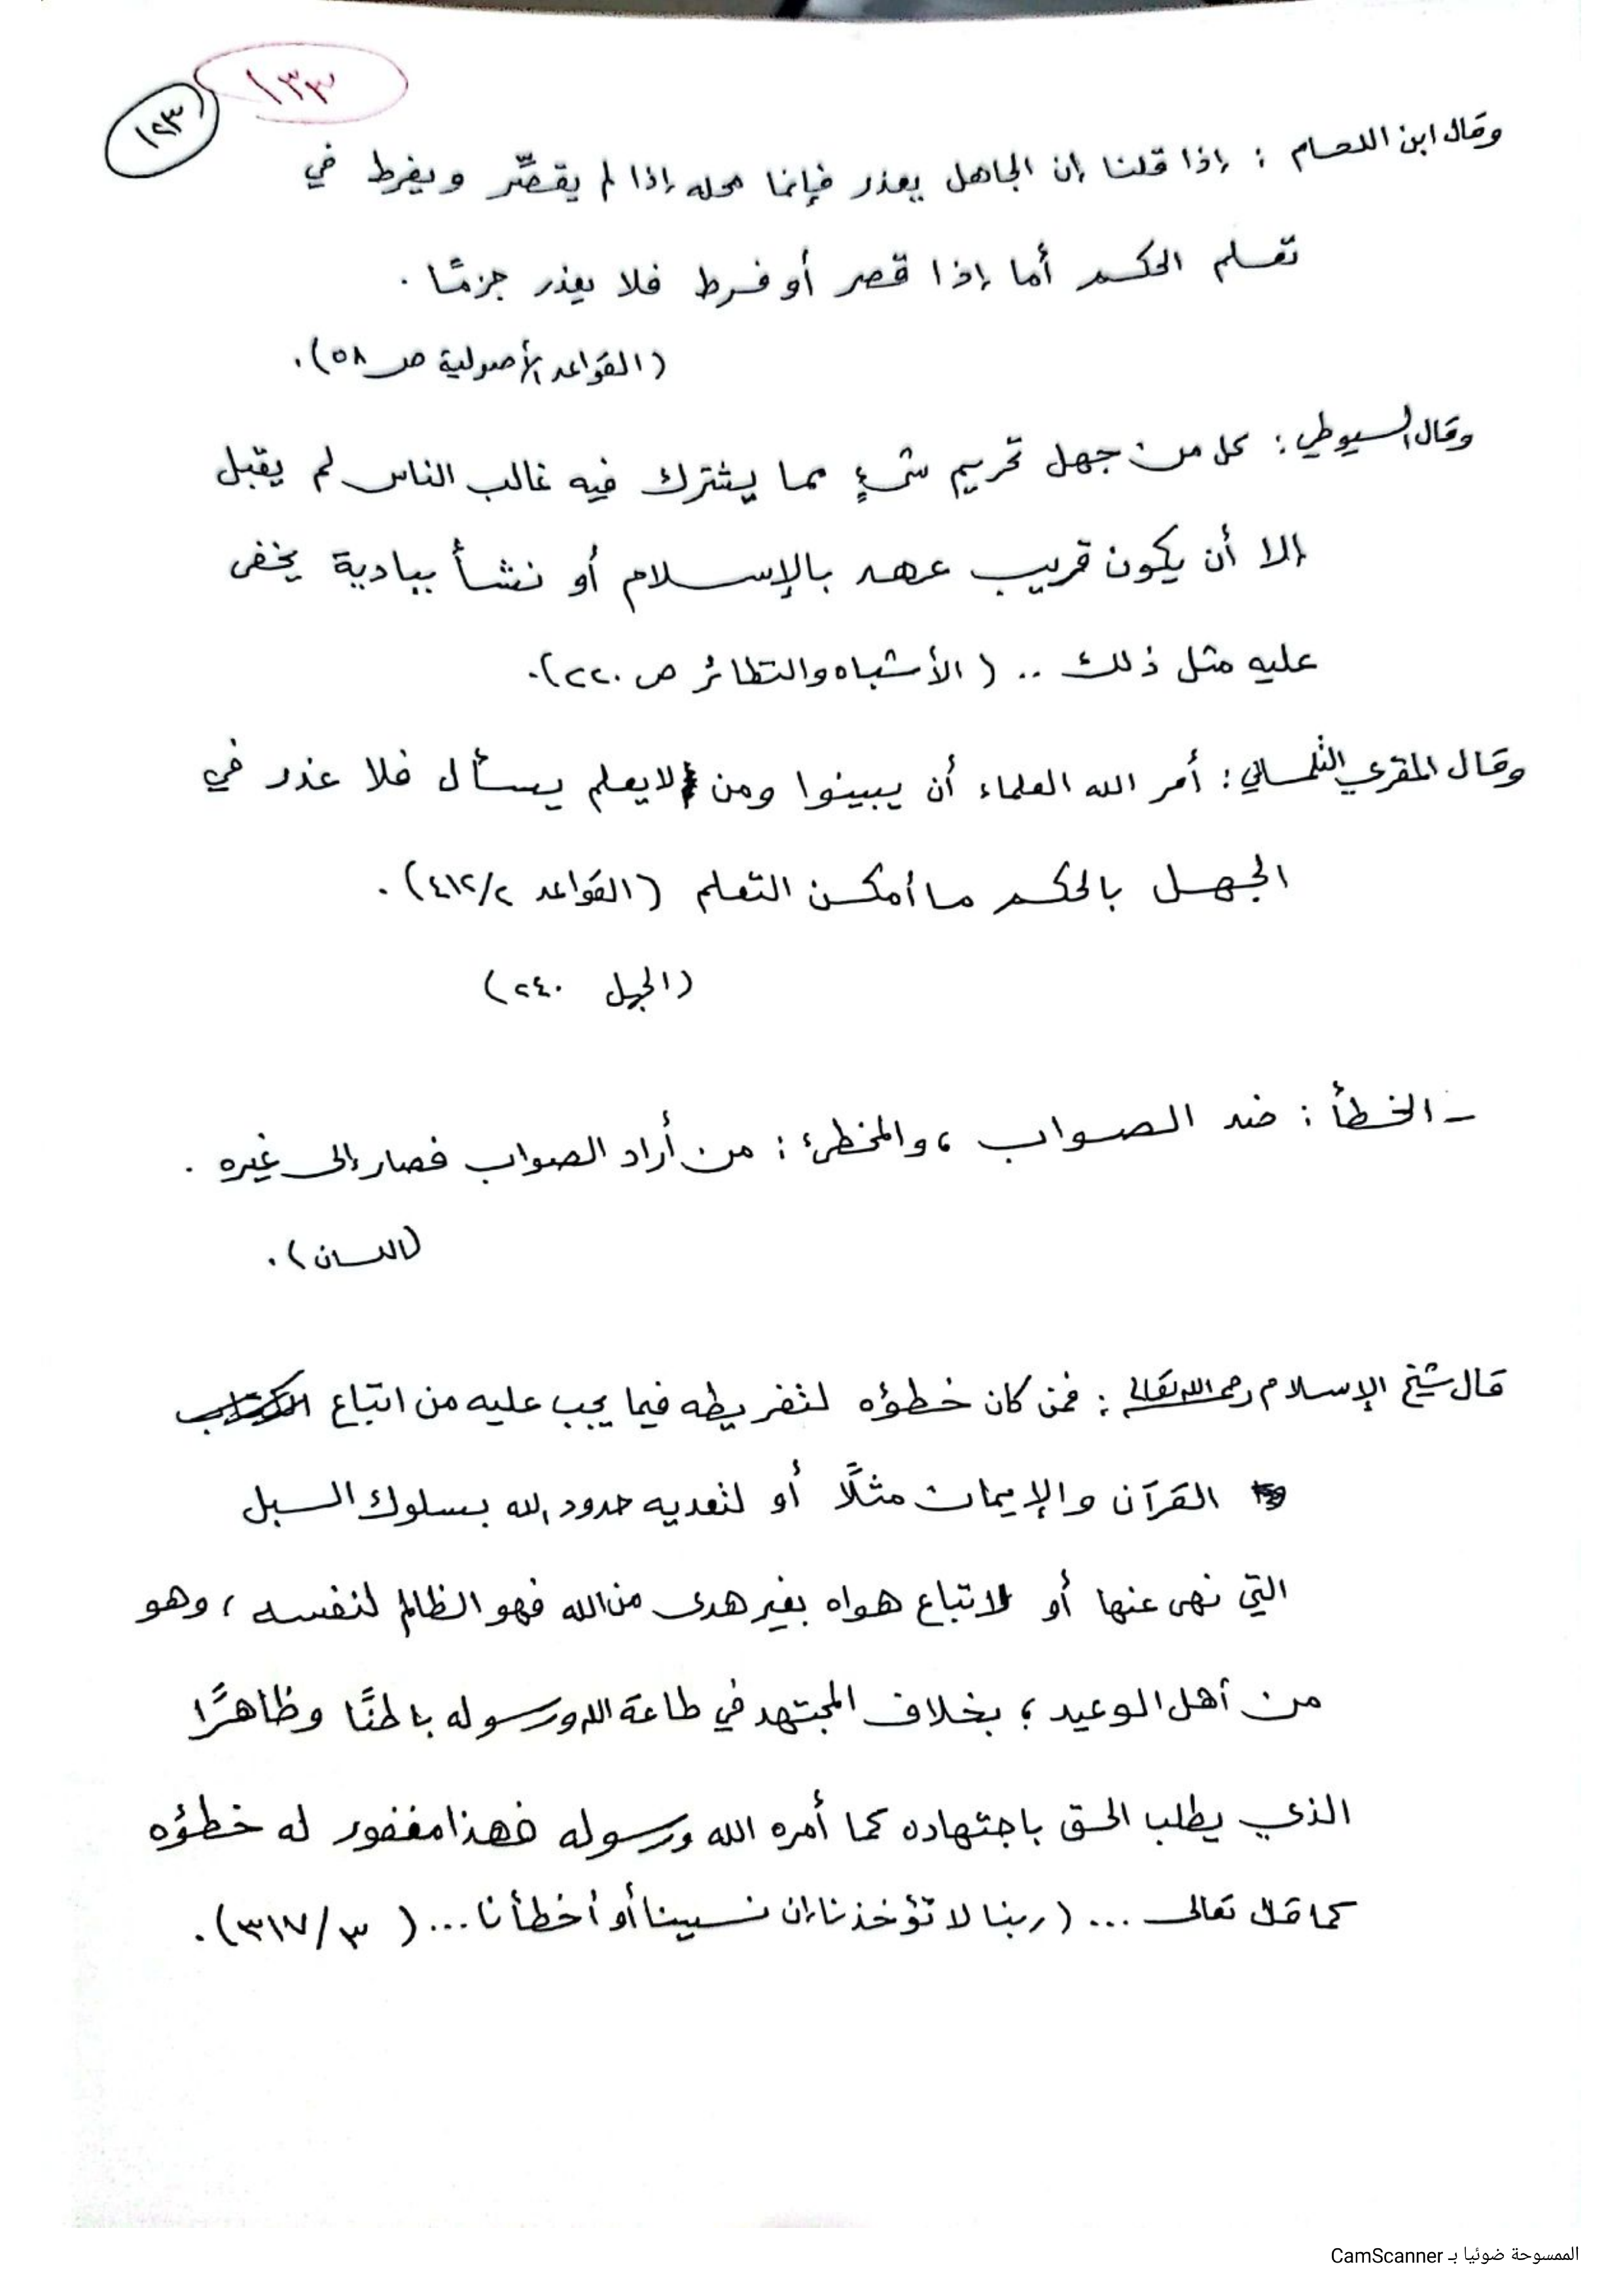 ١٣٣
١٢٣
وقال ابن اللحام : إذا قلنا إن الجاهل يعذر فإنما محله إذا لم يقصِّر ويفرط في
تعلم الحكم أما إذا قصر أو فرط فلا يعذر جزمًا .
(القواعد الأصولية ص ٥٨).
وقال السيوطي : كل من جهل تحريم شيءٍ مما يشترك فيه غالب الناس لم يقبل
إلا أن يكون قريب عهد بالإسلام أو نشأ ببادية يخفى
عليه مثل ذلك .. (الأشباه والنظائر ص ٢٢٠).
وقال المقري التلمساني : أمر الله العلماء أن يبينوا ومن لا يعلم يسأل فلا عذر في
الجهل بالحكم ما أمكن التعلم (القواعد ٤١٢/٢) .
(الجهل ٢٤٠)
ـ الخطأ : ضد الصواب ، والمخطئ : من أراد الصواب فصار إلى غيره .
(اللسان) .
قال شيخ الإسلام رحمه الله تعالى : فمن كان خطؤه لتفريطه فيما يجب عليه من اتباع
القرآن والإيمان مثلًا أو لتعديه حدود الله بسلوك السبل
التي نهى عنها أو لاتباع هواه بغير هدى من الله فهو الظالم لنفسه ، وهو
من أهل الوعيد ؛ بخلاف المجتهد في طاعة الله ورسوله باطنًا وظاهرًا
الذي يطلب الحق باجتهاده كما أمره الله ورسوله فهذا مغفور له خطؤه
كما قال تعالى ... (ربنا لا تؤخذنا إن نسينا أو أخطأنا ... ( ٣١٧/٣).
الممسوحة ضوئيا بـ CamScanner